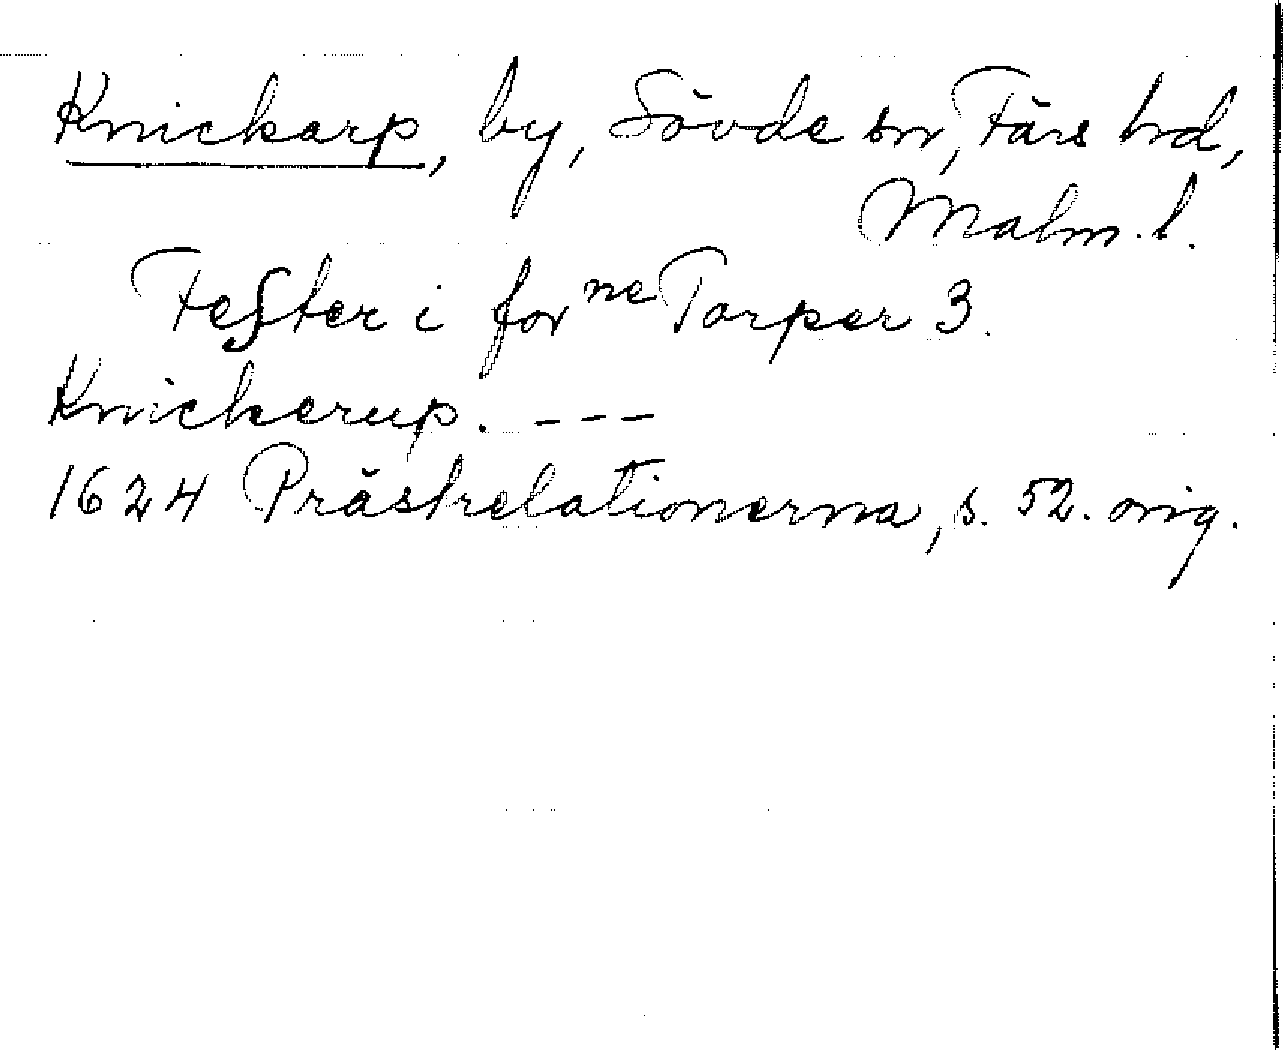 Knickarp, by, Sövde sn, Färs hd,
Malm. l.
Fester i for ne Torper 3.
Knickerup. - - -
1624 Prästrelationerna, s. 52. orig.